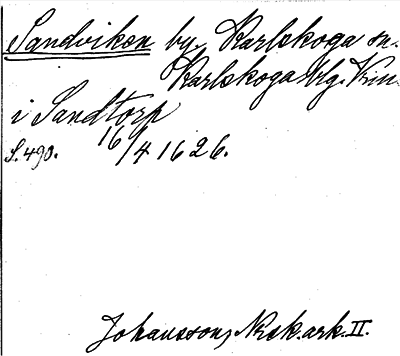 Sandviken by, Karlskoga sn.
Karlskoga blg. Krin.
i Sandtorp
S. 490. 16/4 1626.
Johansson, Nrsk. ark. II.